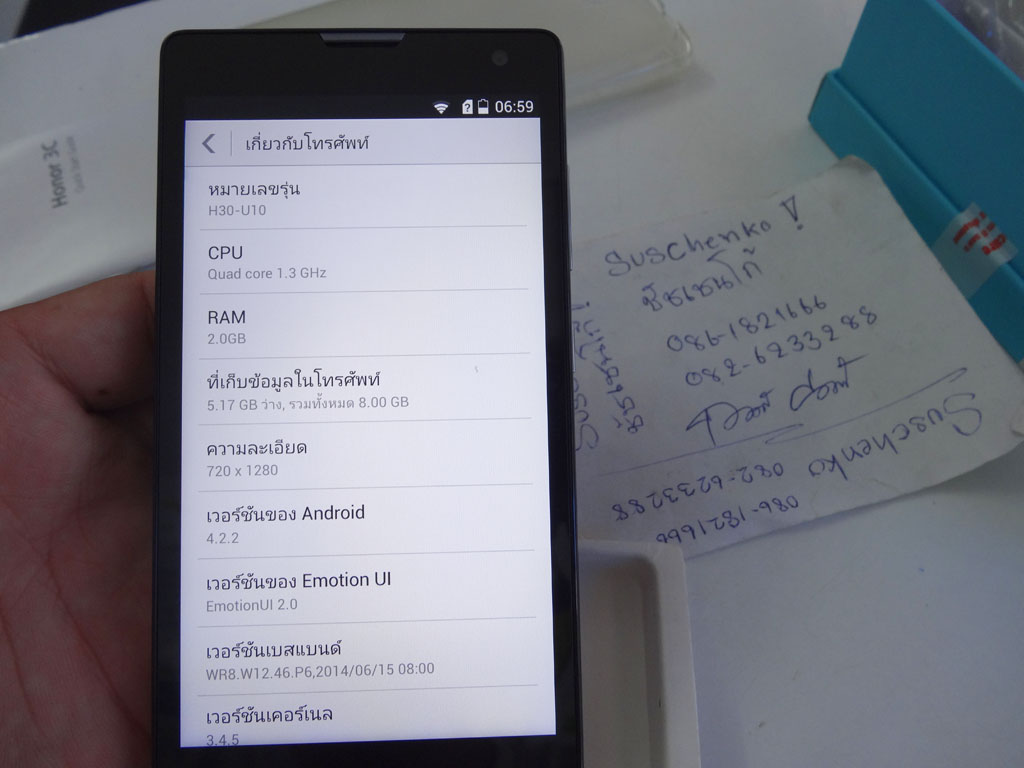 06:59
เกี่ยวกับโทรศัพท์
หมายเลขรุ่น
H30-U10
CPU
Quad core 1.3 GHz
RAM
2.0GB
ที่เก็บข้อมูลในโทรศัพท์
5.17 GB ว่าง, รวมทั้งหมด 8.00 GB
ความละเอียด
720 x 1280
เวอร์ชันของ Android
4.2.2
เวอร์ชันของ Emotion UI
EmotionUI 2.0
เวอร์ชันเบสแบนด์
WR8.W12.46.P6,2014/06/15 08:00
เวอร์ชันเคอร์เนล
3.4.5
Honor 3C
Suschenko !
ชัชเชนโก้
086-1821666
082-6233288
Suschenko
082-6233288
086-1821666